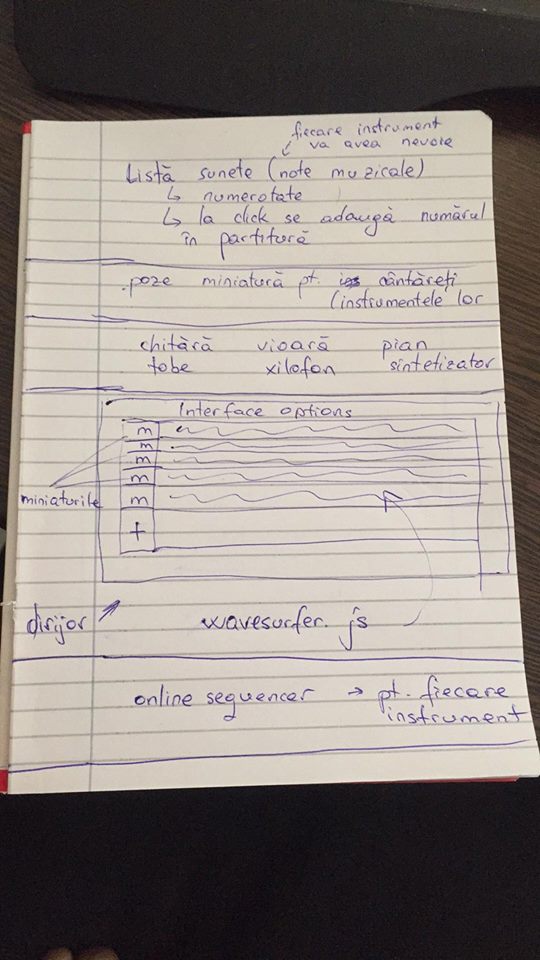 fiecare instrument
va avea nevoie
Listă sunete (note muzicale)
↳ numerotate
↳ la click se adaugă numărul
în partitură
poze miniatură pt. cântăreți
(instrumentele lor
chitără vioară pian
tobe xilofon sintetizator
Interface options
m
m
m
m
m
+
miniaturile
dirijor
wavesurfer.js
online sequencer → pt. fiecare
instrument